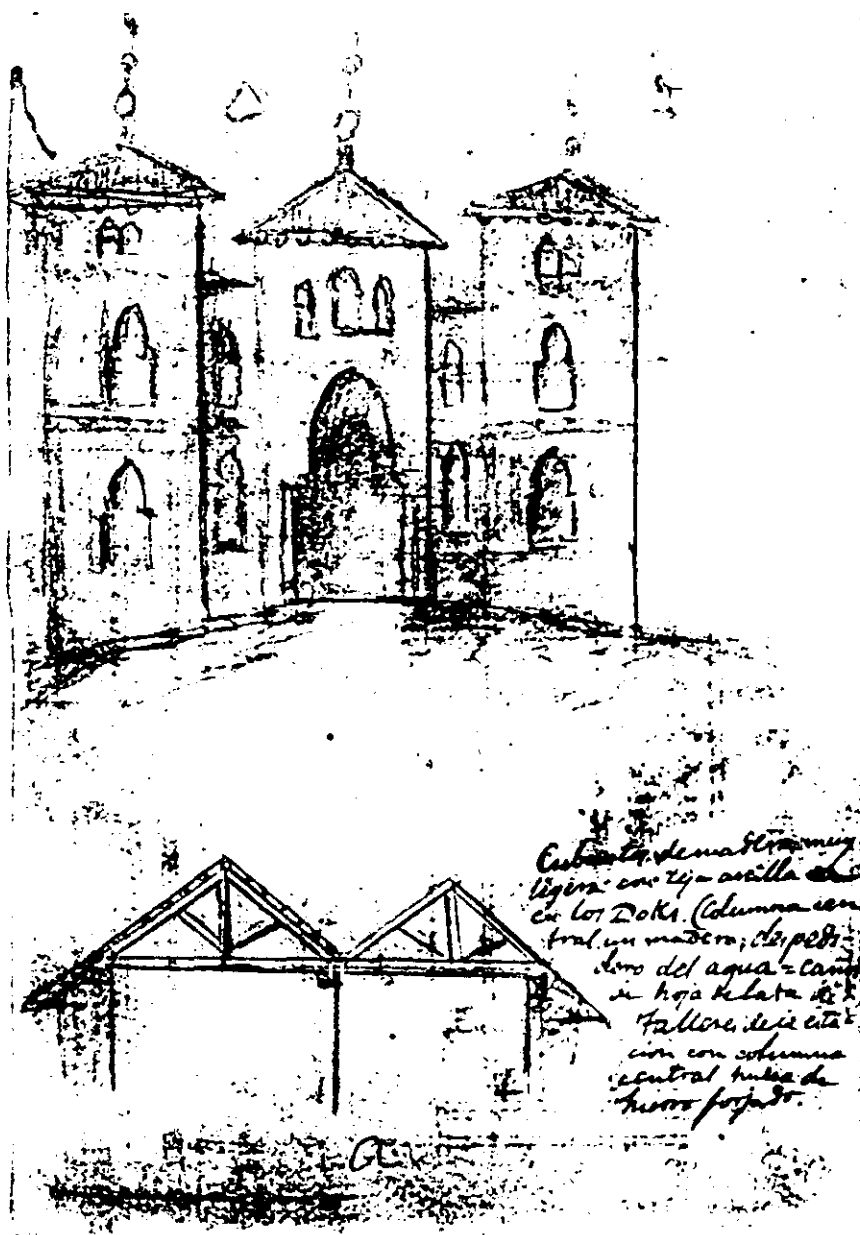 Cubierta de madera muy
ligera con teja arcilla
en los Doks. (Columna cen
tral un madero; despedi-
dero del agua = caño
de hoja de lata
Talleres de la esta
cion con columna
central hueca de
hierro forjado.